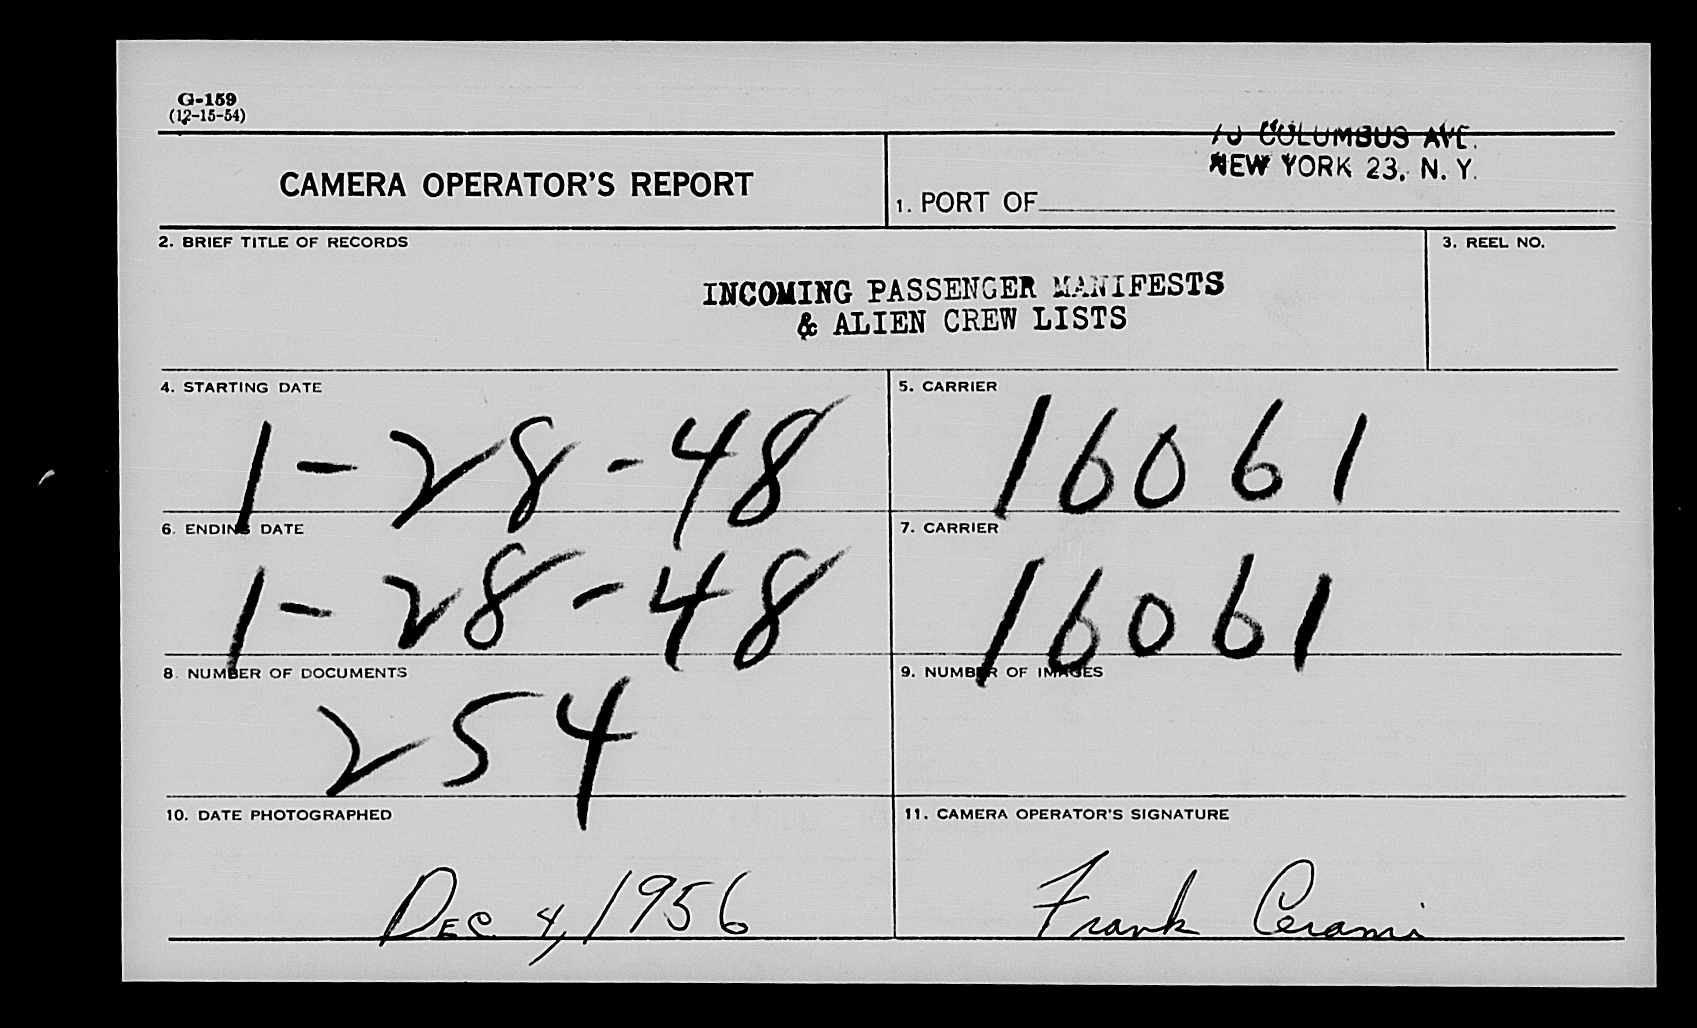 G-159
(12-15-54)
70 COLUMBUS AVE.
NEW YORK 23, N. Y.
CAMERA OPERATOR'S REPORT
1. PORT OF
2. BRIEF TITLE OF RECORDS
3. REEL NO.
INCOMING PASSENGER MANIFESTS
& ALIEN CREW LISTS
4. STARTING DATE
1-28-48
5. CARRIER
16061
6. ENDING DATE
1-28-48
7. CARRIER
16061
8. NUMBER OF DOCUMENTS
254
9. NUMBER OF IMAGES
10. DATE PHOTOGRAPHED
Dec 4, 1956
11. CAMERA OPERATOR'S SIGNATURE
Frank Cerami